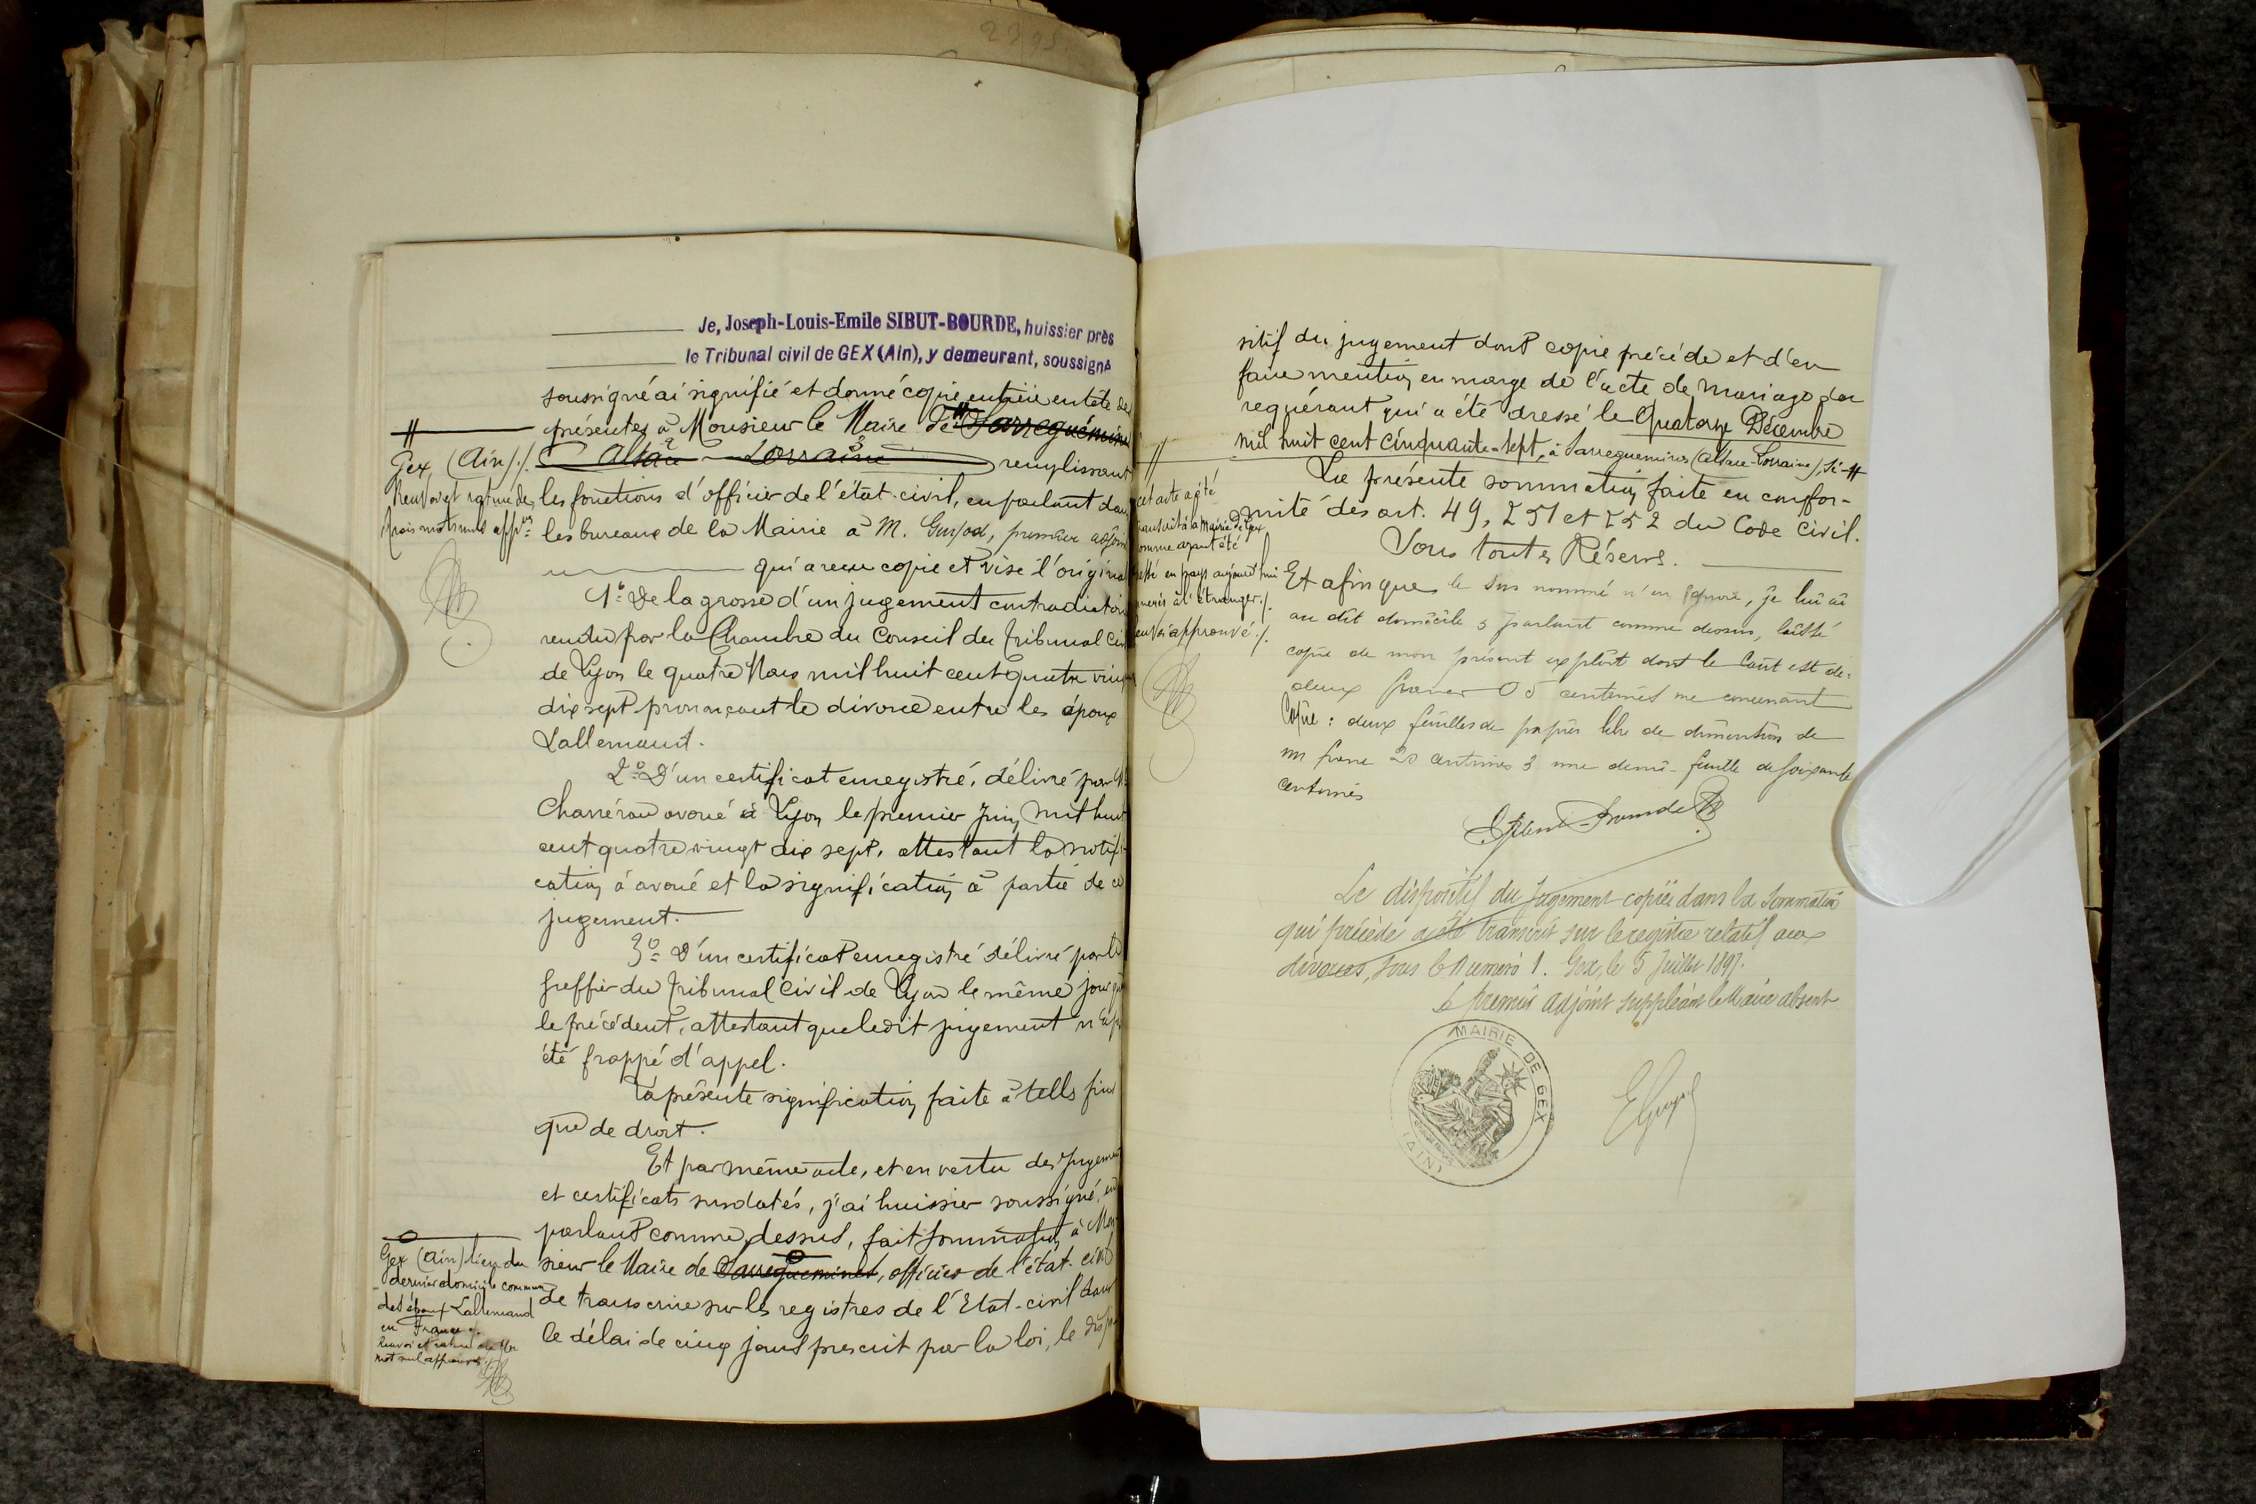 2395
Je, Joseph-Louis-Emile SIBUT-BOURDE, huissier près
le Tribunal civil de GEX (Ain), y demeurant, soussigné
soussigné ai signifié et donné copie entière en tête des
présentes à Monsieur le Maire de Sarreguemines
Alsace - Lorraine remplissant
les fonctions d'officier de l'état-civil, en parlant dans
les bureaux de la Mairie à M. premier adjoint
qui a reçu copie et visé l'original
1º De la grosse d'un jugement contradictoire
rendu par la Chambre du Conseil du Tribunal Civil
de Lyon le quatre Mars mil huit cent quatre vingt
dix sept prononçant le divorce entre les époux
Lallemand.
2º D'un certificat enregistré, délivré par Me
avoué à Lyon le premier Juin mil huit
cent quatre vingt dix sept, attestant la notifi-
cation à avoué et la signification à partie de ce
jugement.
3º D'un certificat enregistré délivré par le
greffier du Tribunal Civil de Lyon le même jour que
le précédent, attestant que ledit jugement n'a pas
été frappé d'appel.
La présente signification faite à telles fins
que de droit.
Et par même acte, et en vertu des Jugement
et certificats susdatés, j'ai huissier soussigné, en
parlant comme dessus, fait sommation à Mon-
sieur le Maire de Sarreguemines, officier de l'état-civil
de transcrire sur les registres de l'Etat-civil dans
le délai de cinq jours prescrit par la loi, le dispo-
Gex (Ain)./.
Renvoi et rature de
trois mots nuls appvés
Gex (Ain) lieu du
dernier domicile commun
des époux Lallemand
en France./.
Renvoi et rature de
mot nul approuvés./.
sitif du jugement dont copie précède et d'en
faire mention en marge de l'acte de mariage du
requérant qui a été dressé le Quatorze Décembre
mil huit cent cinquante-sept, à Sarreguemines (Alsace-Lorraine),
La présente sommation faite en confor-
mité des art. 49, 251 et 252 du Code Civil.
Sous toutes Réserves.
Et afin que le sus nommé n'en ignore, je lui ai
au dit domicile & parlant comme dessus, laissé
copie de mon présent exploit dont le coût est de:
deux francs 05 centimes me concernant
Copie: deux feuilles de papier libre de dimension de
un franc 20 centimes & une demi-feuille de soixante
centimes
cet acte a été
transcrit à la Mairie de Gex
comme ayant été
en pays aujourd'hui
à l'étranger./.
renvoi approuvé./.
Le dispositif du Jugement copié dans la Sommation
qui précède a été transcrit sur le registre relatif aux
divorces, sous le Numéro 1. Gex, le 5 Juillet 1897.
Le premier adjoint suppléant le Maire absent
MAIRIE DE GEX
(AIN)